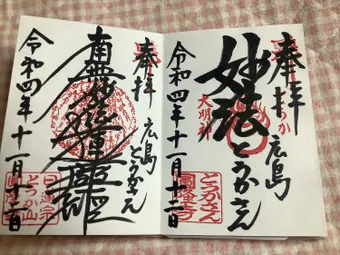 奉拝
広島
妙法
とうかさん
大明神
令和四年十一月十二日
とうかさん
圓隆寺
奉拝
広島
とうかさん
南無妙法蓮華経
令和四年十一月十二日
日蓮宗
とうか山
圓隆寺